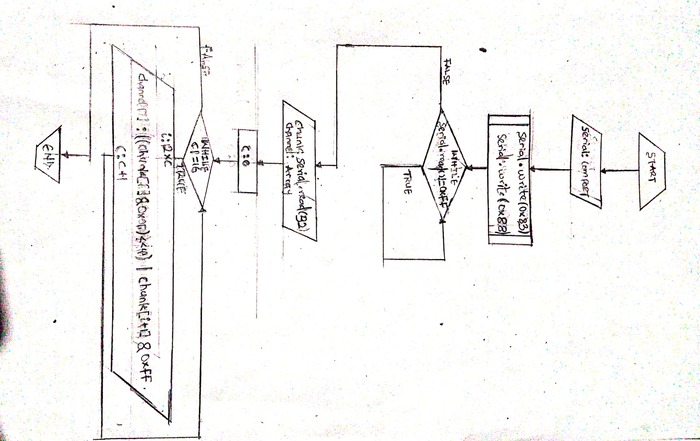 START
serial: import
serial.write(0x83)
serial.write(0x88)
WHILE
serial.read != 0xFF
TRUE
FALSE
chunk: serial.read(32)
channel: Array
c: 0
WHILE
c != 16
TRUE
FALSE
i: 2xc
channel[c] : ((chunk[i] & 0x0F) << 4) | chunk[i+1] & 0xFF.
c: c+1
END.